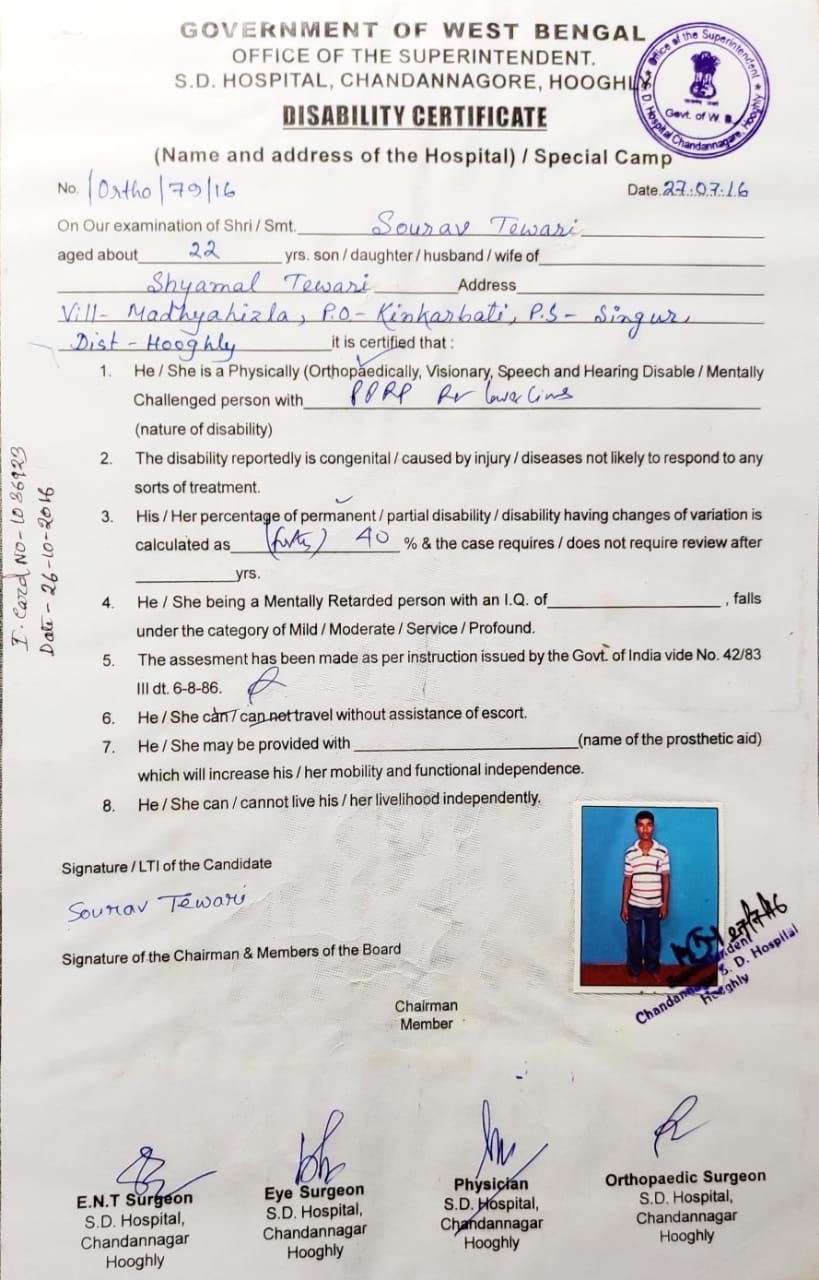 GOVERNMENT OF WEST BENGAL
OFFICE OF THE SUPERINTENDENT.
S.D. HOSPITAL, CHANDANNAGORE, HOOGHLY
Office of the Superintendent
S. D. Hospital Chandannagare, Hooghly
Govt. of W. B.
DISABILITY CERTIFICATE
(Name and address of the Hospital) / Special Camp
No. /Ortho/79/16 Date. 27.07.16
On Our examination of Shri / Smt. Sourav Tewari
aged about 22 yrs. son / daughter / husband / wife of
Shyamal Tewari Address
Vill- Madhyahizla, P.O- Kinkarbati, P.S- Singur,
Dist - Hooghly it is certified that :
1. He / She is a Physically (Orthopaedically, Visionary, Speech and Hearing Disable / Mentally
Challenged person with PPRP Rt lower limb
(nature of disability)
2. The disability reportedly is congenital / caused by injury / diseases not likely to respond to any
sorts of treatment.
3. His / Her percentage of permanent / partial disability / disability having changes of variation is
calculated as (forty) 40 % & the case requires / does not require review after
yrs.
4. He / She being a Mentally Retarded person with an I.Q. of , falls
under the category of Mild / Moderate / Service / Profound.
5. The assesment has been made as per instruction issued by the Govt. of India vide No. 42/83
III dt. 6-8-86.
6. He / She can / can not travel without assistance of escort.
7. He / She may be provided with (name of the prosthetic aid)
which will increase his / her mobility and functional independence.
8. He / She can / cannot live his / her livelihood independently.
I. Card No- 1036923
Date - 26-10-2016
Signature / LTI of the Candidate
Sourav Tewari
Signature of the Chairman & Members of the Board
27/7/16
Superintendent
Chandannagar S. D. Hospital
Hooghly
Chairman
Member
E.N.T Surgeon
S.D. Hospital,
Chandannagar
Hooghly
Eye Surgeon
S.D. Hospital,
Chandannagar
Hooghly
Physician
S.D. Hospital,
Chandannagar
Hooghly
Orthopaedic Surgeon
S.D. Hospital,
Chandannagar
Hooghly